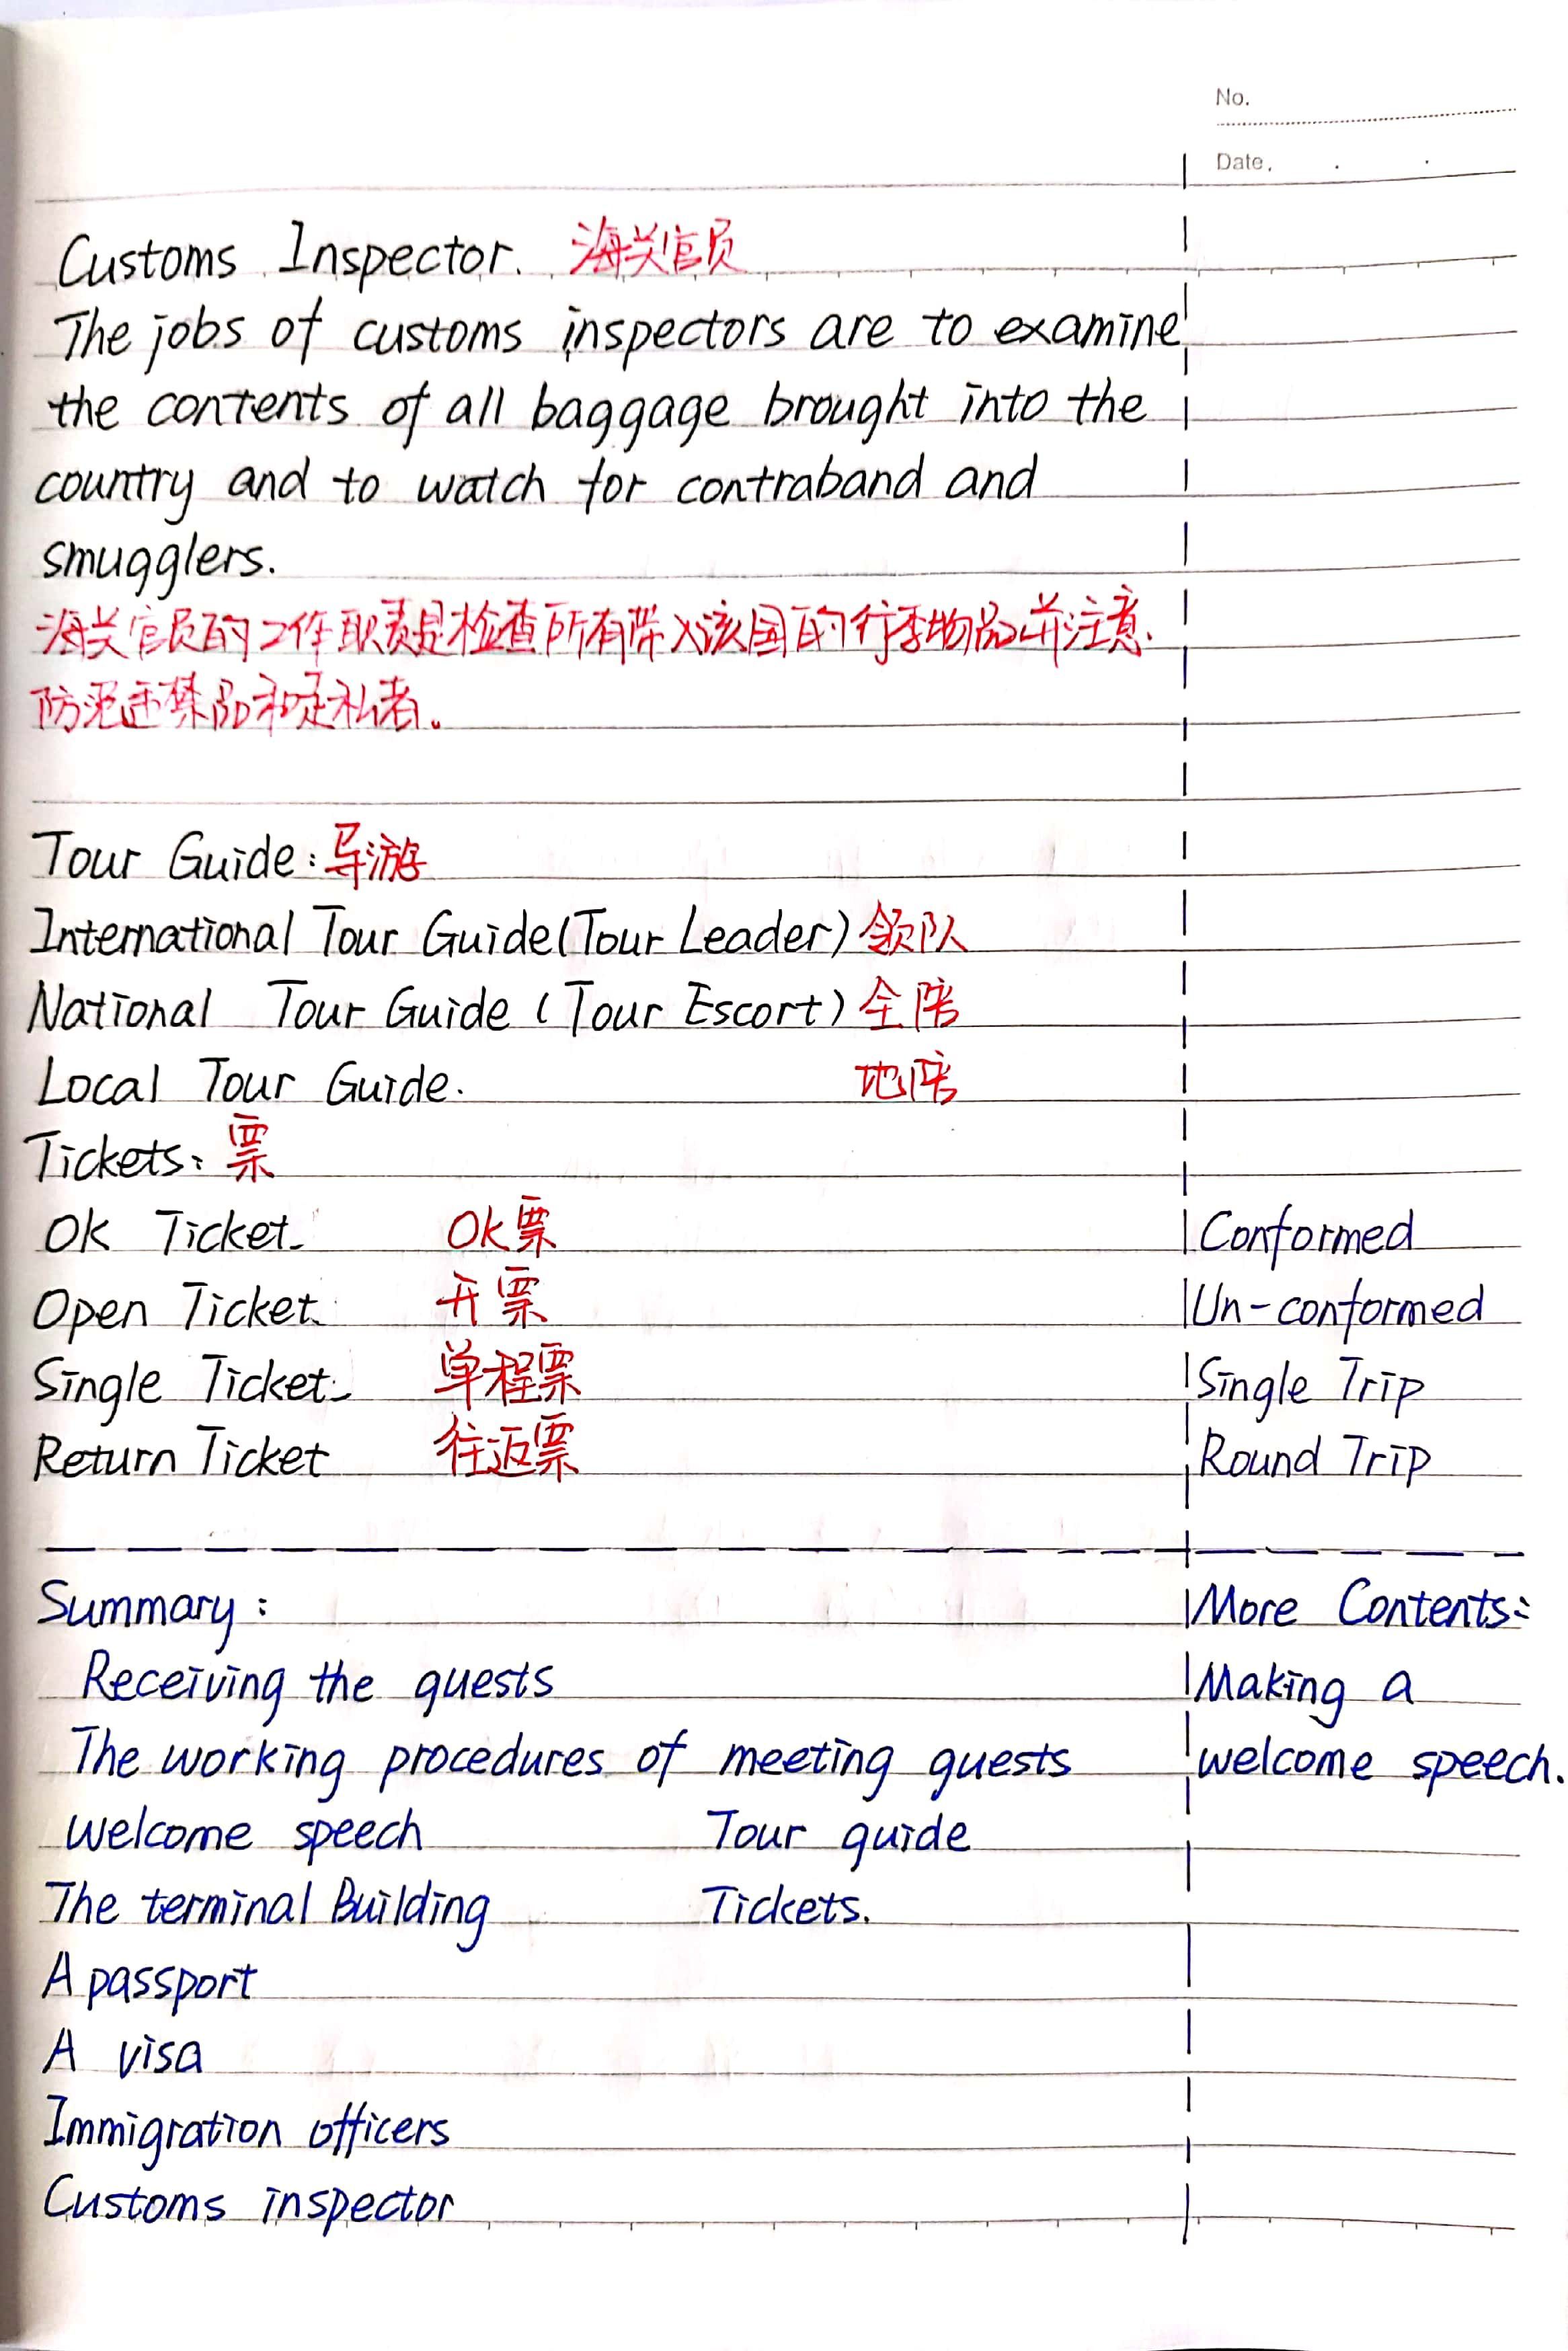 No.
Date.
Customs Inspector. 海关官员
The jobs of customs inspectors are to examine
the contents of all baggage brought into the
country and to watch for contraband and
smugglers.
海关官员的工作职责是检查所有带入该国的行李物品并注意
防范违禁品和走私者。
Tour Guide: 导游
International Tour Guide (Tour Leader) 领队
National Tour Guide (Tour Escort) 全陪
Local Tour Guide. 地陪
Tickets: 票
OK Ticket. OK票 Conformed
Open Ticket. 开票 Un-conformed
Single Ticket. 单程票 Single Trip
Return Ticket 往返票 Round Trip
Summary:
Receiving the guests
The working procedures of meeting guests
Welcome speech Tour guide
The terminal Building Tickets.
A passport
A visa
Immigration officers
Customs inspector
More Contents:
Making a
welcome speech.